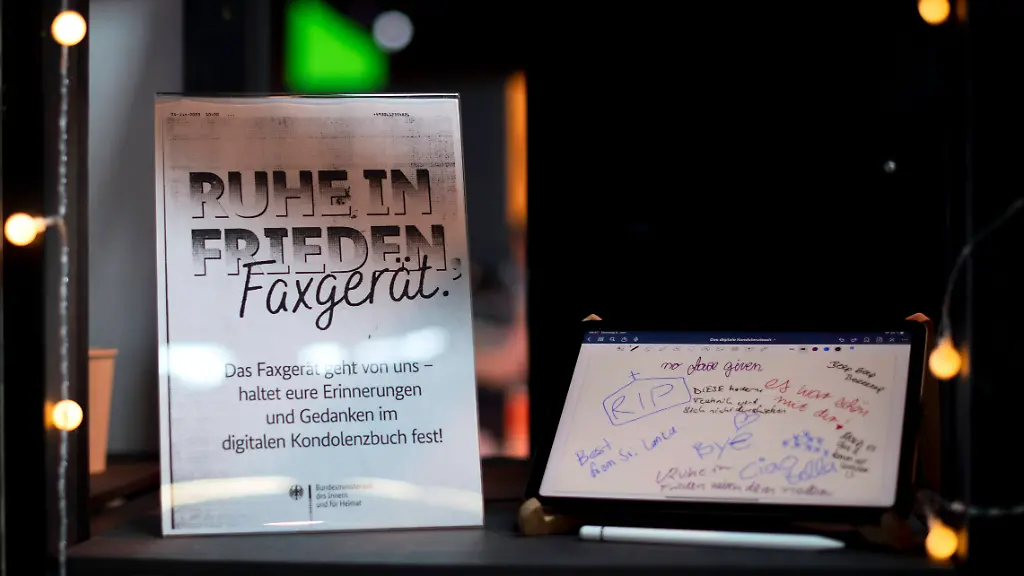 RUHE IN
FRIEDEN,
Faxgerät.
Das Faxgerät geht von uns –
haltet eure Erinnerungen
und Gedanken im
digitalen Kondolenzbuch fest!
Bundesministerium
des Innern
und für Heimat
Das digitale Kondolenzbuch
no fax given
RIP
DIESE
Technik wird
sich nicht durchsetzen
es war schön
mit dir!
Best
from Sri Lanka
Bye
Ciao Bella
Ruhe in
Frieden neben dem modem